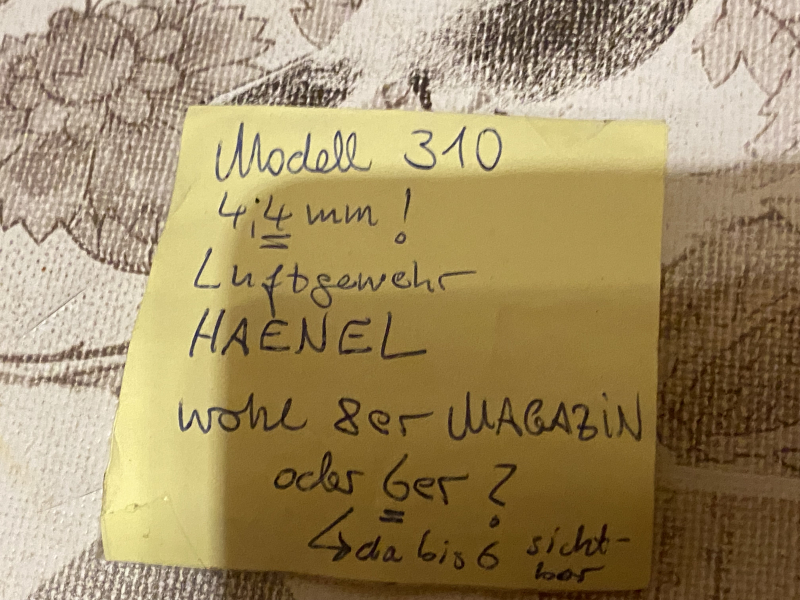 Modell 310
4,4 mm!
Luftgewehr
HAENEL
wohl 8er MAGAZIN
oder 6er ?
↳ da bis 6 sicht-
bar